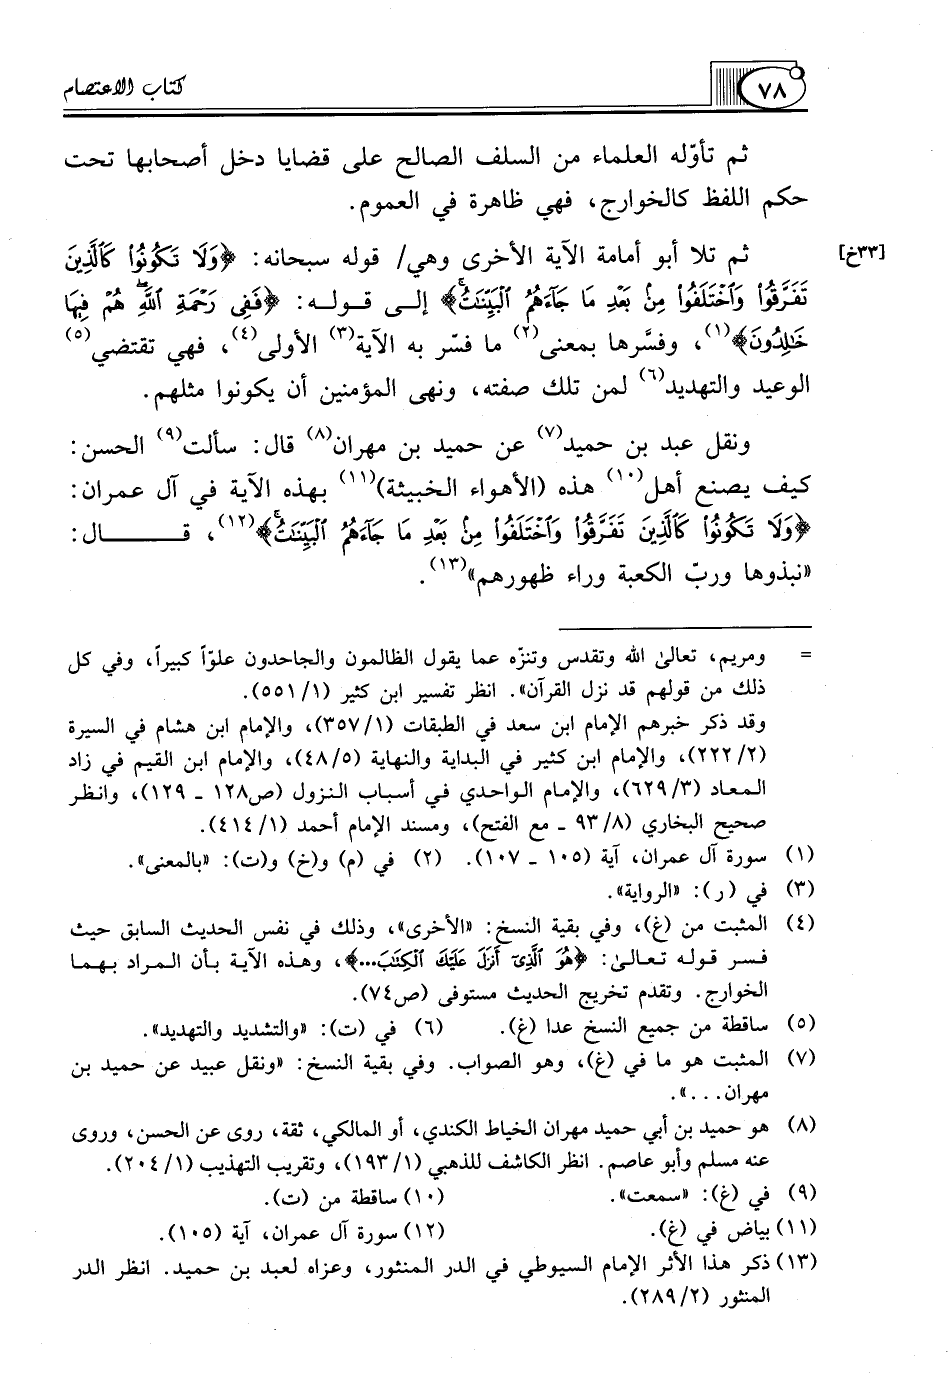 ٧٨
كتاب الاعتصام
ثم تأوّله العلماء من السلف الصالح على قضايا دخل أصحابها تحت
حكم اللفظ كالخوارج، فهي ظاهرة في العموم.
[٣٣خ]
ثم تلا أبو أمامة الآية الأخرى وهي/ قوله سبحانه: ﴿وَلَا تَكُونُوا۟ كَٱلَّذِينَ
تَفَرَّقُوا۟ وَٱخْتَلَفُوا۟ مِنۢ بَعْدِ مَا جَآءَهُمُ ٱلْبَيِّنَٰتُۚ﴾ إلى قوله: ﴿فَفِى رَحْمَةِ ٱللَّهِۖ هُمْ فِيهَا
خَٰلِدُونَ﴾(١)، وفسَّرها بمعنى(٢) ما فسّر به الآية(٣) الأولى(٤)، فهي تقتضي(٥)
الوعيد والتهديد(٦) لمن تلك صفته، ونهى المؤمنين أن يكونوا مثلهم.
ونقل عبد بن حميد(٧) عن حميد بن مهران(٨) قال: سألت(٩) الحسن:
كيف يصنع أهل(١٠) هذه (الأهواء الخبيثة)(١١) بهذه الآية في آل عمران:
﴿وَلَا تَكُونُوا۟ كَٱلَّذِينَ تَفَرَّقُوا۟ وَٱخْتَلَفُوا۟ مِنۢ بَعْدِ مَا جَآءَهُمُ ٱلْبَيِّنَٰتُۚ﴾(١٢)، قـــال:
«نبذوها وربّ الكعبة وراء ظهورهم»(١٣).
= ومريم، تعالىٰ الله وتقدس وتنزّه عما يقول الظالمون والجاحدون علوّاً كبيراً، وفي كل
ذلك من قولهم قد نزل القرآن». انظر تفسير ابن كثير (١/ ٥٥١).
وقد ذكر خبرهم الإمام ابن سعد في الطبقات (١/ ٣٥٧)، والإمام ابن هشام في السيرة
(٢/ ٢٢٢)، والإمام ابن كثير في البداية والنهاية (٥/ ٤٨)، والإمام ابن القيم في زاد
المعاد (٣/ ٦٢٩)، والإمام الواحدي في أسباب النزول (ص١٢٨ ـ ١٢٩)، وانظر
صحيح البخاري (٨/ ٩٣ ـ مع الفتح)، ومسند الإمام أحمد (١/ ٤١٤).
(١) سورة آل عمران، آية (١٠٥ ـ ١٠٧). (٢) في (م) و(خ) و(ت): «بالمعنى».
(٣) في (ر): «الرواية».
(٤) المثبت من (غ)، وفي بقية النسخ: «الأخرى»، وذلك في نفس الحديث السابق حيث
فسر قوله تعالىٰ: ﴿هُوَ ٱلَّذِىٓ أَنزَلَ عَلَيْكَ ٱلْكِتَٰبَ...﴾، وهذه الآية بأن المراد بهما
الخوارج. وتقدم تخريج الحديث مستوفى (ص٧٤).
(٥) ساقطة من جميع النسخ عدا (غ). (٦) في (ت): «والتشديد والتهديد».
(٧) المثبت هو ما في (غ)، وهو الصواب. وفي بقية النسخ: «ونقل عبيد عن حميد بن
مهران...».
(٨) هو حميد بن أبي حميد مهران الخياط الكندي، أو المالكي، ثقة، روى عن الحسن، وروى
عنه مسلم وأبو عاصم. انظر الكاشف للذهبي (١/ ١٩٣)، وتقريب التهذيب (١/ ٢٠٤).
(٩) في (غ): «سمعت». (١٠) ساقطة من (ت).
(١١) بياض في (غ). (١٢) سورة آل عمران، آية (١٠٥).
(١٣) ذكر هذا الأثر الإمام السيوطي في الدر المنثور، وعزاه لعبد بن حميد. انظر الدر
المنثور (٢/ ٢٨٩).